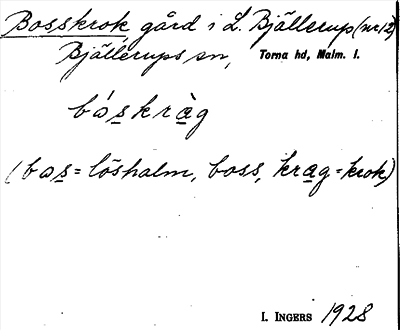 Bosskrok gård i L. Bjällerup (nr 12)
Bjällerups sn, Torna hd, Malm. l.
bóskràg
(bos = löshalm, boss, krag = krok)
I. INGERS 1928